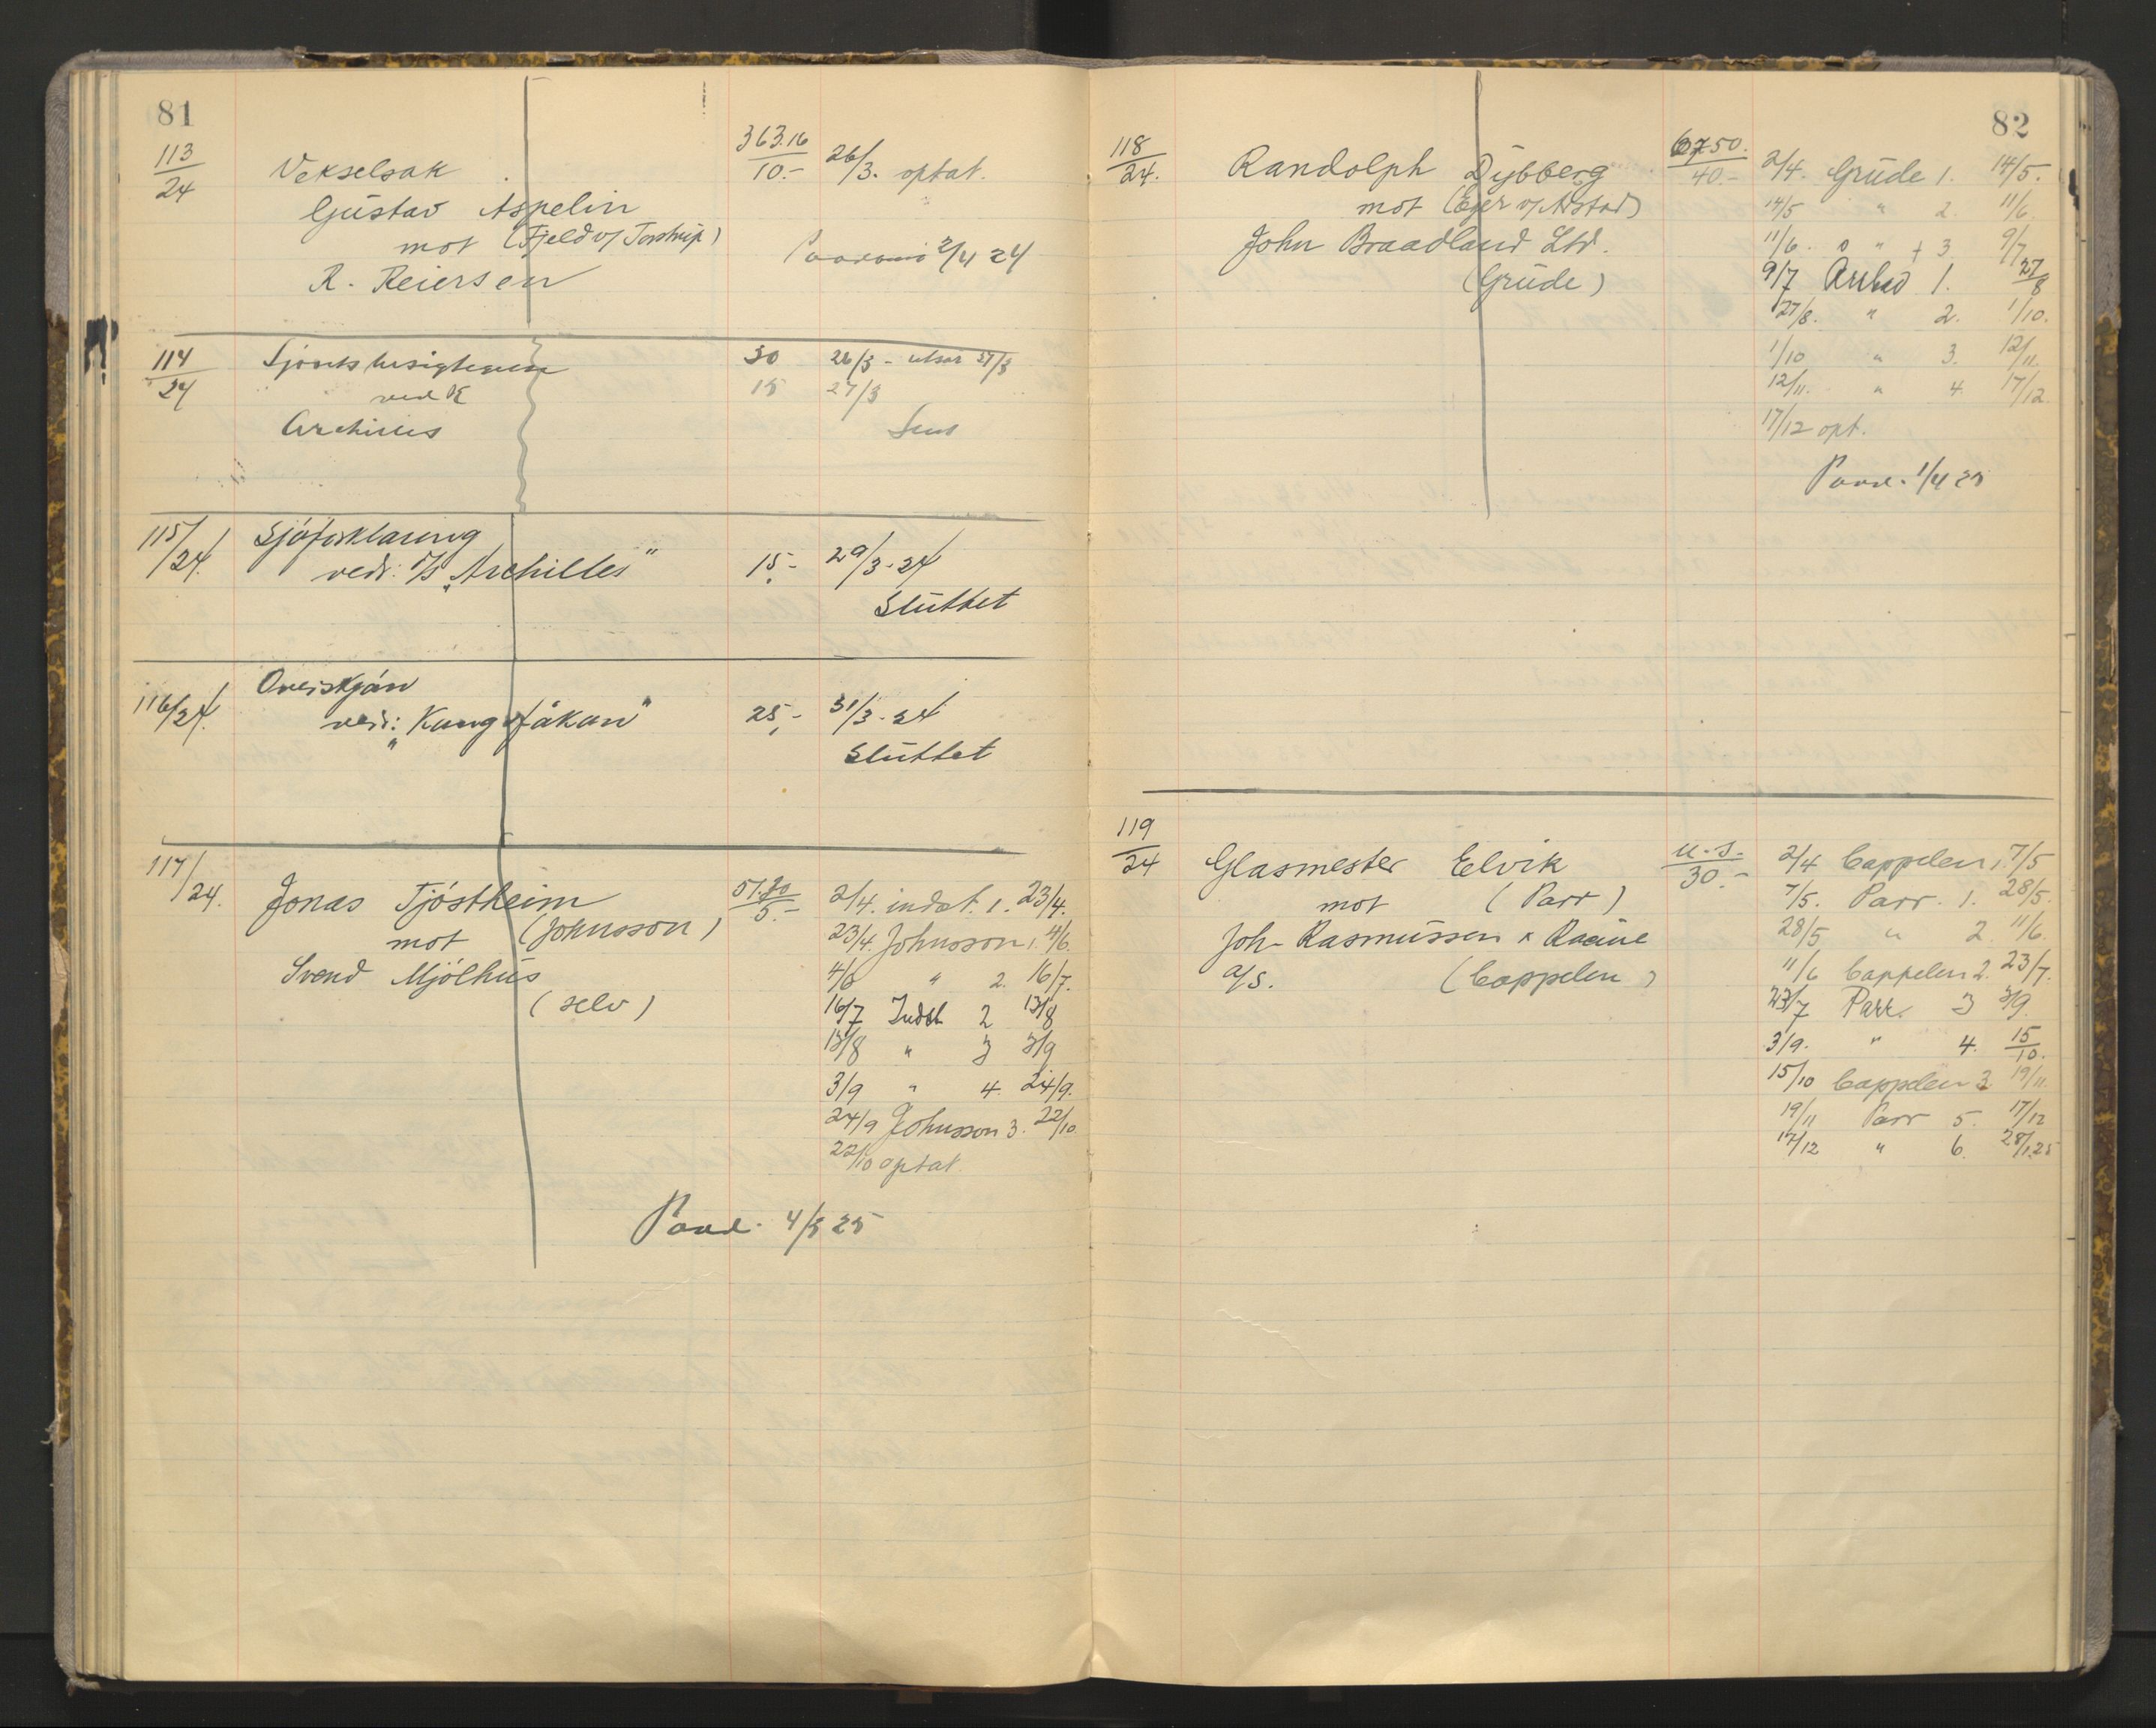 81
113/24
Vekselsak
363.16
10.-
26/3. optat.
Gustav Aspelin
mot (Fjeld v/ Torstrup)
R. Reiersen
2/4 24
114/24
30
26/3 -
ved
15
27/3
Archilles
115/24.
Sjöforklaring
vedr: D/S „Archilles"
15,-
29/3-24
Sluttet
116/24.
Overskjön
vedr: „Kung Håkan"
25,-
31/3-24
Sluttet
117/24.
Jonas Tjöstheim
mot (Johnsson)
Svend Mjölhus
(selv)
5.-
2/4. indst. 1. 23/4.
23/4. Johnsson 1. 4/6.
4/6 " 2. 16/7.
16/7 Indst 2 13/8
13/8 " 3 3/9
3/9 " 4. 24/9.
24/9 Johnsson 3. 22/10
22/10 optat.
Paad. 4/3 25
82
118/24.
Randolph Dybberg
mot (Eger v/ Arstad)
John Braadland Ltd.
(Grude)
6750.
40.-
2/4. Grude 1. 14/5.
14/5 " 2. 11/6.
11/6. " + 3 9/7
9/7 Arstad 1. 27/8
27/8. " 2. 1/10.
1/10 " 3. 12/11.
12/11. " 4. 17/12.
17/12 opt.
Paad. 1/4 25
119/24
Glasmester Elvik
mot (Parr)
Joh- Rasmussen & Raaüe
a/s. (Cappelen)
u.s.
30.-
2/4 Cappelen 1. 7/5
7/5. Parr. 1. 28/5.
28/5 " 2. 11/6.
11/6 Cappelen 2. 23/7.
23/7 Parr. 3 3/9.
3/9. " 4. 15/10.
15/10 Cappelen 3 19/11.
19/11 Parr 5. 17/12
17/12 " 6. 28/1.25